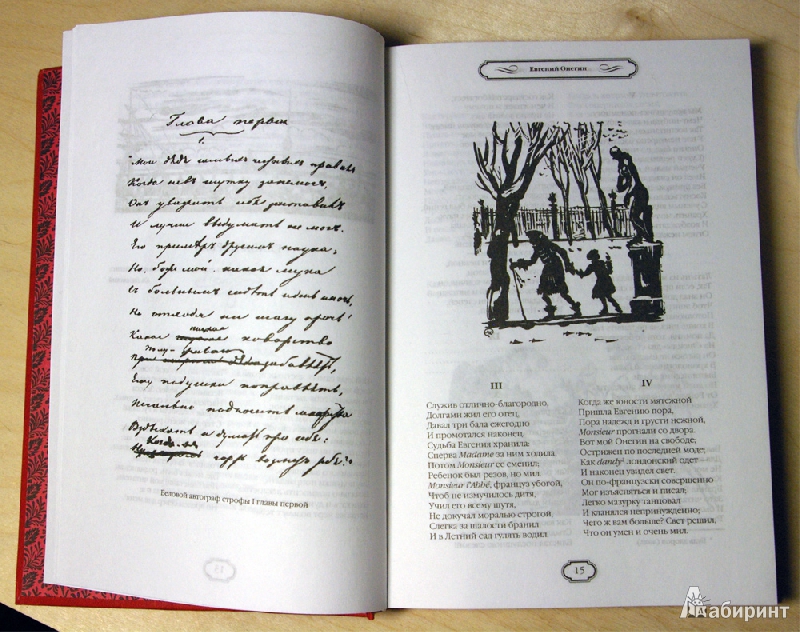 Глава первая
Мой дядя самыхъ честныхъ правилъ
Когда не въ шутку занемогъ,
Онъ уважать себя заставилъ
И лучше выдумать не могъ.
Его примѣръ другимъ наука;
Но, боже мой, какая скука
Съ больнымъ сидѣть и день и ночь,
Не отходя ни шагу прочь!
Какое низкое коварство
забавлять,
Ему подушки поправлять,
Печально подносить лѣкарство
Вздыхать и думать про себя:
Когда же чортъ возьметъ тебя?
Беловой автограф строфы I главы первой
Евгений Онегин
III
Служив отлично-благородно,
Долгами жил его отец,
Давал три бала ежегодно
И промотался наконец.
Судьба Евгения хранила:
Сперва Madame за ним ходила,
Потом Monsieur ее сменил;
Ребенок был резов, но мил.
Monsieur l'Abbé, француз убогой,
Чтоб не измучилось дитя,
Учил его всему шутя,
Не докучал моралью строгой,
Слегка за шалости бранил
И в Летний сад гулять водил.
IV
Когда же юности мятежной
Пришла Евгению пора,
Пора надежд и грусти нежной,
Monsieur прогнали со двора.
Вот мой Онегин на свободе;
Острижен по последней моде;
Как dandy¹ лондонский одет —
И наконец увидел свет.
Он по-французски совершенно
Мог изъясняться и писал;
Легко мазурку танцевал
И кланялся непринужденно;
Чего ж вам больше? Свет решил,
Что он умен и очень мил.
15
Лабиринт